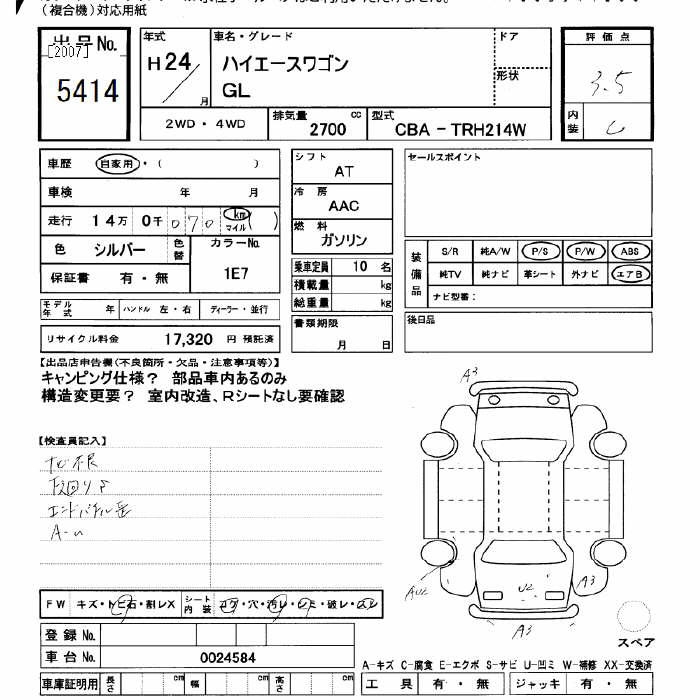 （複合機）対応用紙
出品No.
[2007]
5414
年式
H24
月
車名・グレード
ハイエースワゴン
GL
ドア
形状
評価点
3.5
内装
C
2WD・4WD
排気量
cc
2700
型式
CBA－TRH214W
車歴
自家用・（　　　）
車検　年　月
走行　14万　0千　070　km
マイル（　）
色　シルバー
色替
カラーNo.
1E7
保証書　有・無
モデル年式　年
ハンドル　左・右
ディーラー・並行
リサイクル料金　17,320　円　預託済
シフト
AT
冷房
AAC
燃料
ガソリン
乗車定員　10　名
積載量　kg
総重量　kg
書類期限
月　日
セールスポイント
装備品
S/R　純A/W　P/S　P/W　ABS
純TV　純ナビ　革シート　外ナビ　エアB
ナビ型番：
後日品
【出品店申告欄（不良箇所・欠品・注意事項等）】
キャンピング仕様？　部品車内あるのみ
構造変更要？　室内改造、Rシートなし要確認
【検査員記入】
FW　キズ・トビ石・割レX
シート内装　コゲ・穴・汚レ・シミ・破レ・スレ
登録No.
車台No.　0024584
車庫証明用　長さ　cm　幅　cm　高さ　cm
A3
AU2
U2
A3
A3
スペア
A-キズ　C-腐食　E-エクボ　S-サビ　U-凹ミ　W-補修　XX-交換済
工具　有・無　ジャッキ　有・無